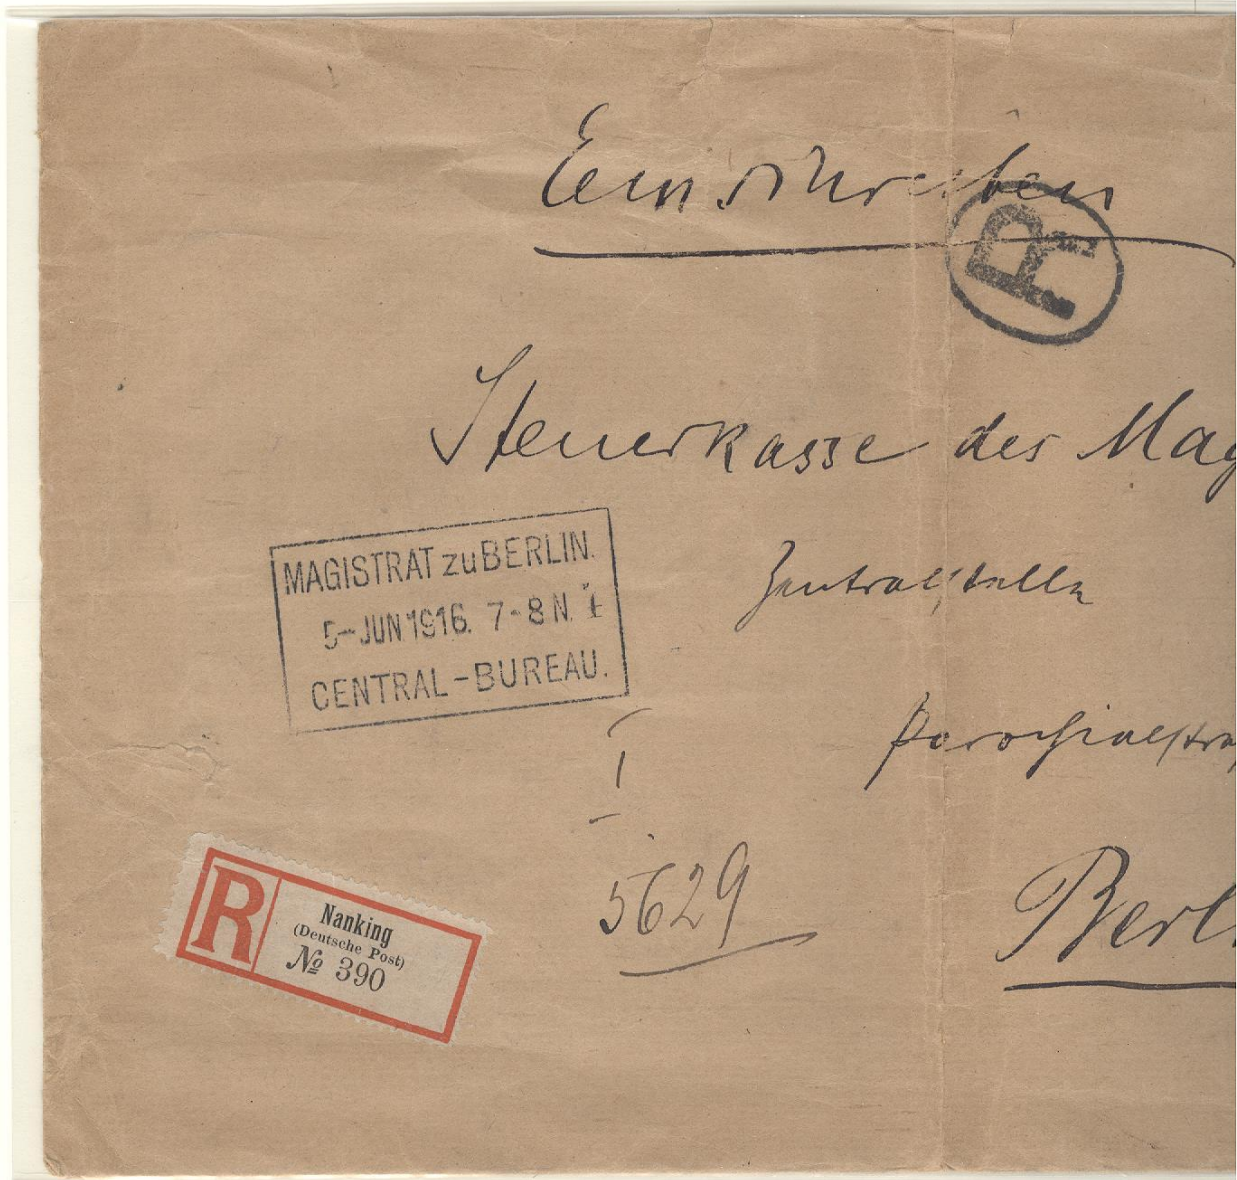 Einschreiben
R
Steuerkasse des Mag
Zentralstelle
MAGISTRAT zu BERLIN.
5-JUN 1916. 7-8 N.
CENTRAL-BUREAU.
Parochialstra
I
5629
Berl
R
Nanking
(Deutsche Post)
№ 390